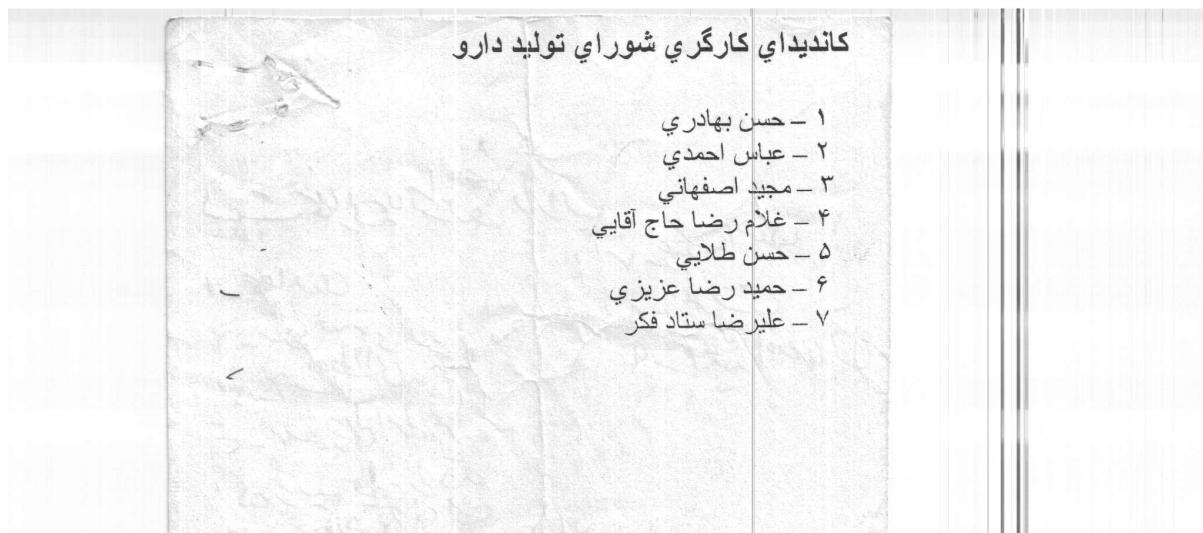 كانديداي كارگري شوراي توليد دارو
۱ – حسن بهادري
۲ – عباس احمدي
۳ – مجيد اصفهاني
۴ – غلام رضا حاج آقايي
۵ – حسن طلايي
۶ – حميد رضا عزيزي
۷ – عليرضا ستاد فكر